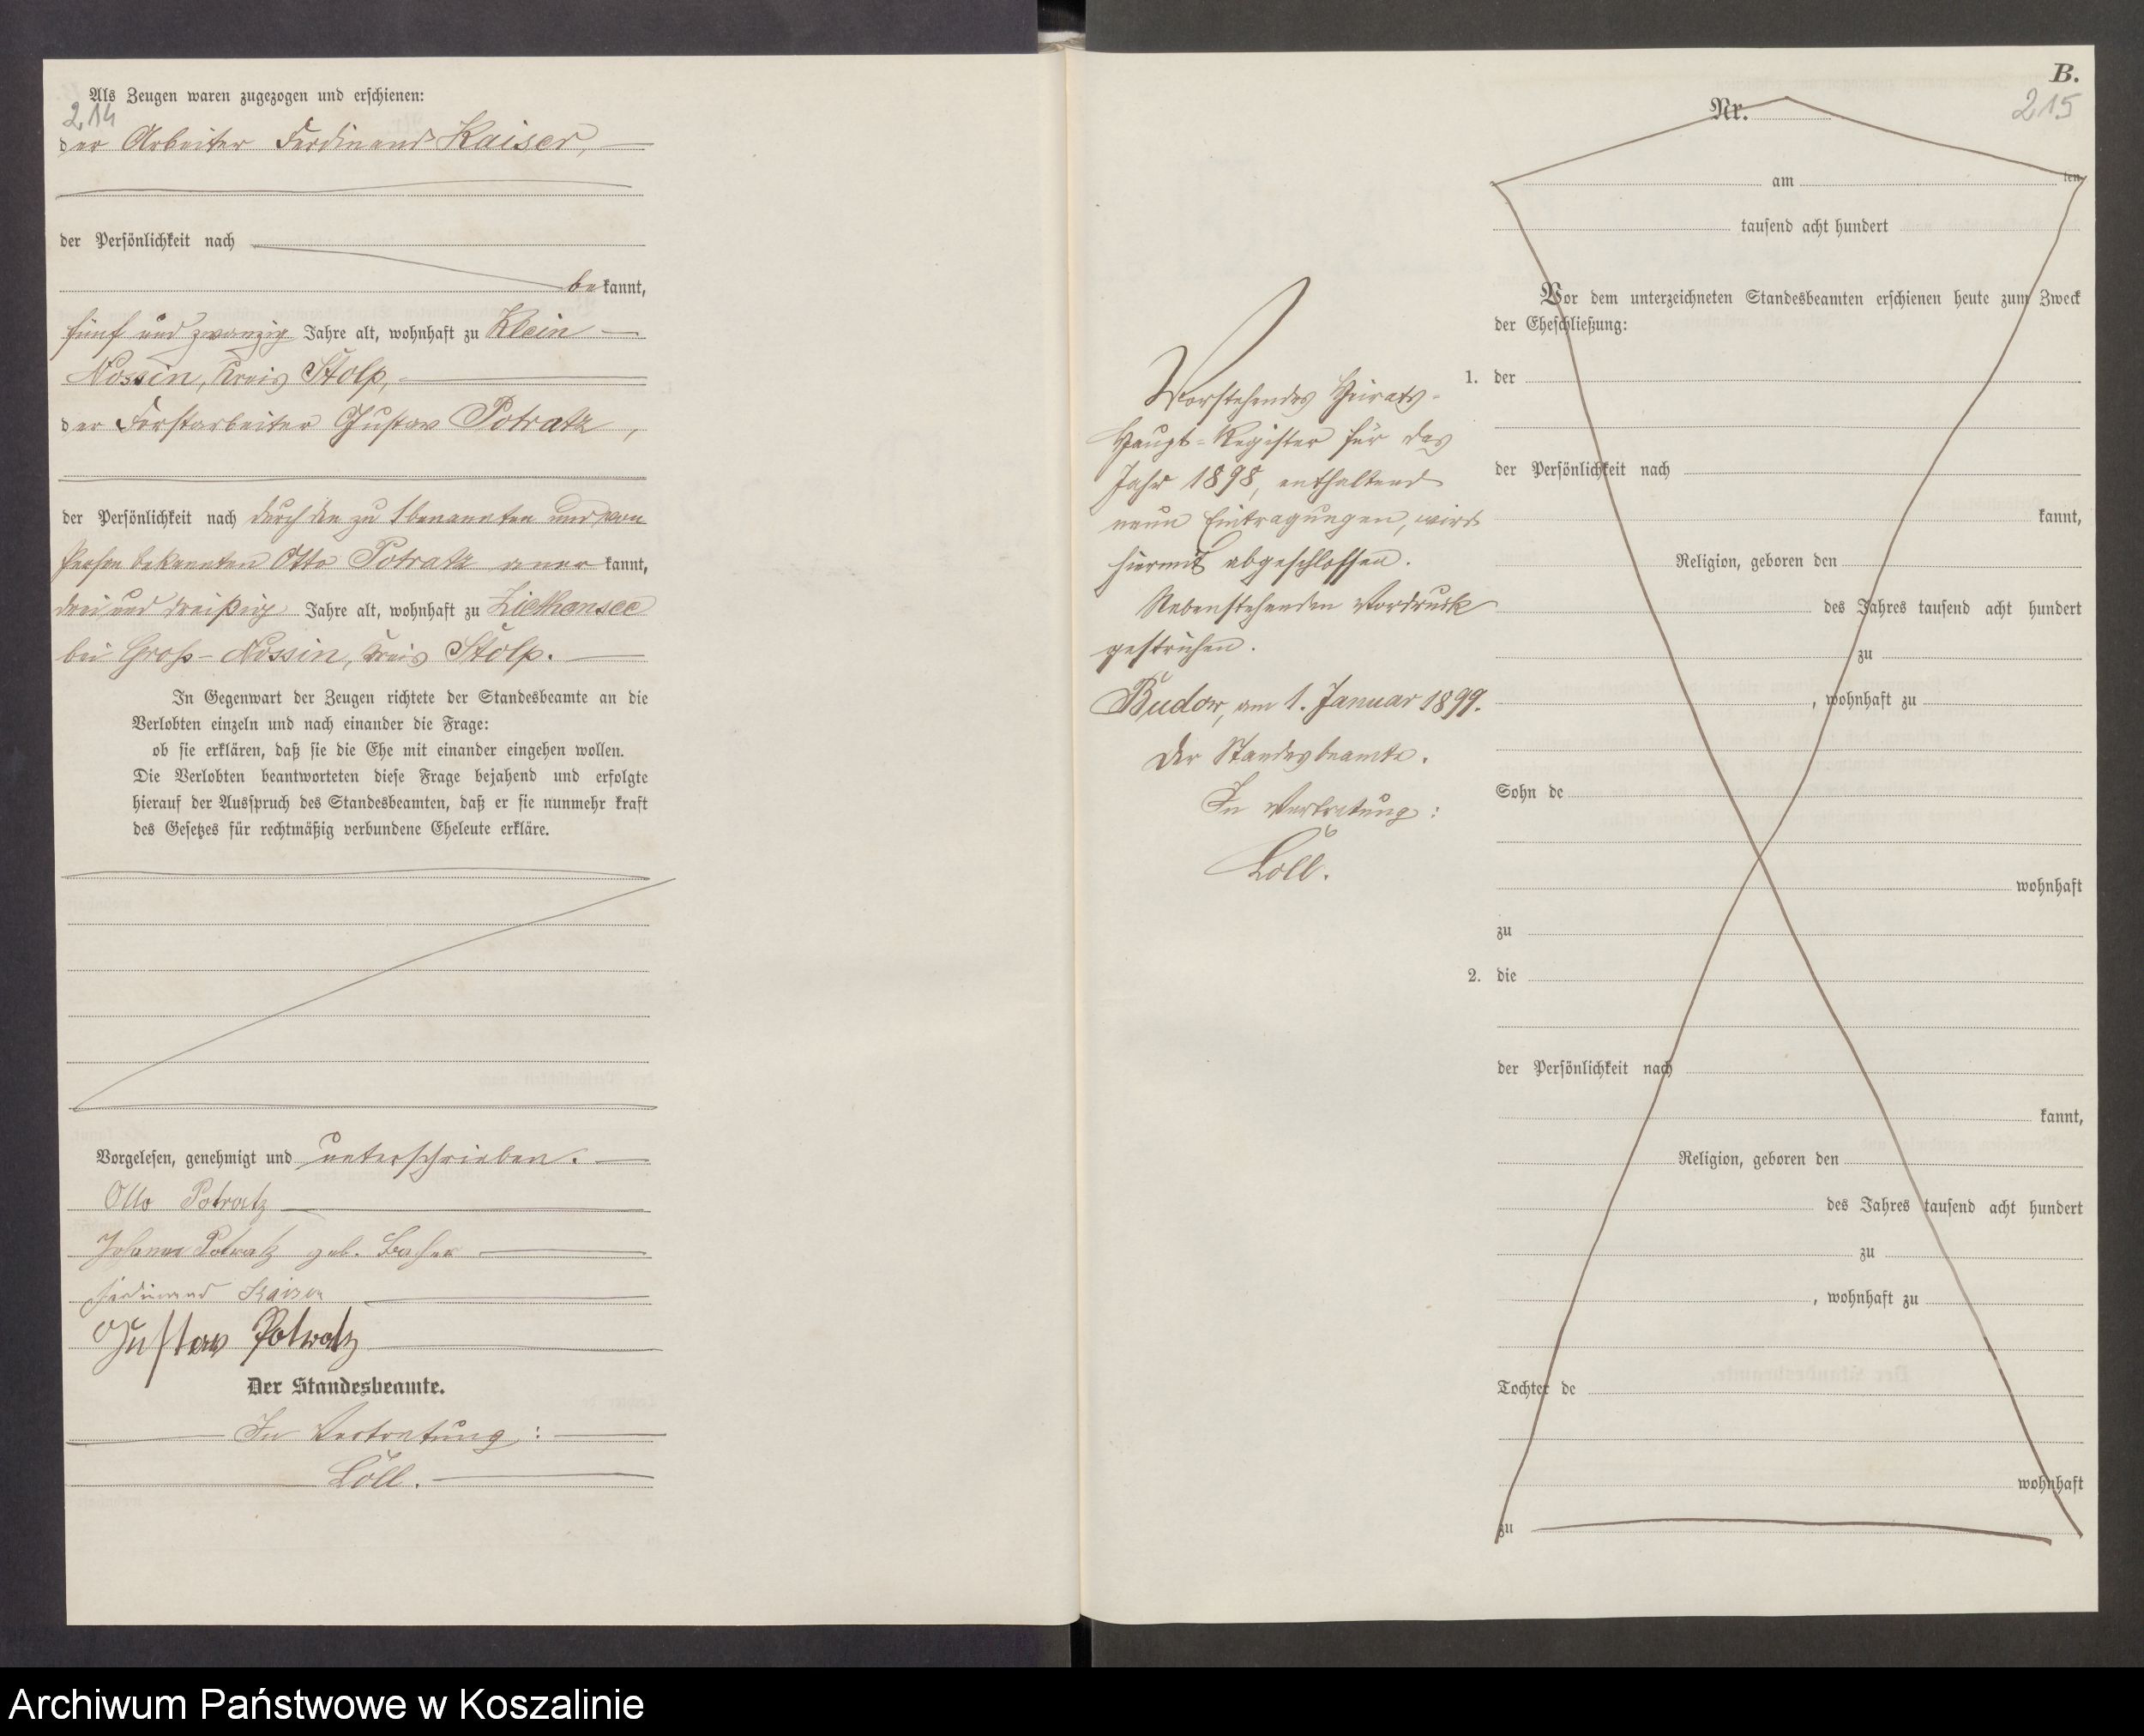 Als Zeugen waren zugezogen und erschienen:
214
der Arbeiter Ferdinand Kaiser,
der Persönlichkeit nach
bekannt,
fünf und zwanzig Jahre alt, wohnhaft zu Klein
Nossin, Kreis Stolp,
der Forstarbeiter Gustav Potratz,
der Persönlichkeit nach durch den zu 1 benannten und von
Person bekannten Otto Potratz aner kannt,
drei und dreißig Jahre alt, wohnhaft zu Ziethensee
bei Groß-Nossin, Kreis Stolp.
In Gegenwart der Zeugen richtete der Standesbeamte an die
Verlobten einzeln und nach einander die Frage:
ob sie erklären, daß sie die Ehe mit einander eingehen wollen.
Die Verlobten beantworteten diese Frage bejahend und erfolgte
hierauf der Ausspruch des Standesbeamten, daß er sie nunmehr kraft
des Gesetzes für rechtmäßig verbundene Eheleute erkläre.
Vorgelesen, genehmigt und unterschrieben.
Otto Potratz
Johanna Potratz geb.
Ferdinand Kaiser
Gustav Potratz
Der Standesbeamte.
In Vertretung:
Löll.
Vorstehendes Heirats-
Haupt-Register für das
Jahr 1898, enthaltend
neun Eintragungen, wird
hiermit abgeschlossen.
Nebenstehenden Vordruck
gestrichen.
Budow, am 1. Januar 1899.
Der Standesbeamte.
In Vertretung:
Löll.
B.
215
Nr.
am ten
tausend acht hundert
Vor dem unterzeichneten Standesbeamten erschienen heute zum Zweck
der Eheschließung:
1. der
der Persönlichkeit nach
kannt,
Religion, geboren den
des Jahres tausend acht hundert
zu
, wohnhaft zu
Sohn de
wohnhaft
zu
2. die
der Persönlichkeit nach
kannt,
Religion, geboren den
des Jahres tausend acht hundert
zu
, wohnhaft zu
Tochter de
wohnhaft
zu
Archiwum Państwowe w Koszalinie